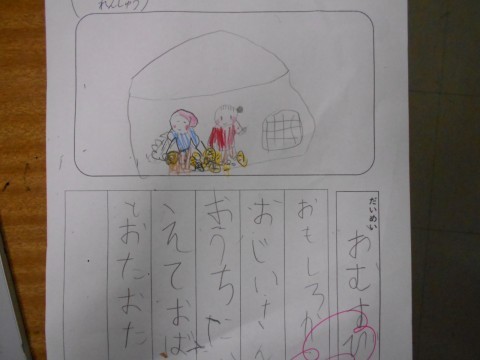 れんしゅう)
だいめい
おむすび
おもしろか
おじいさん
おうちだ
えておば
おたおた